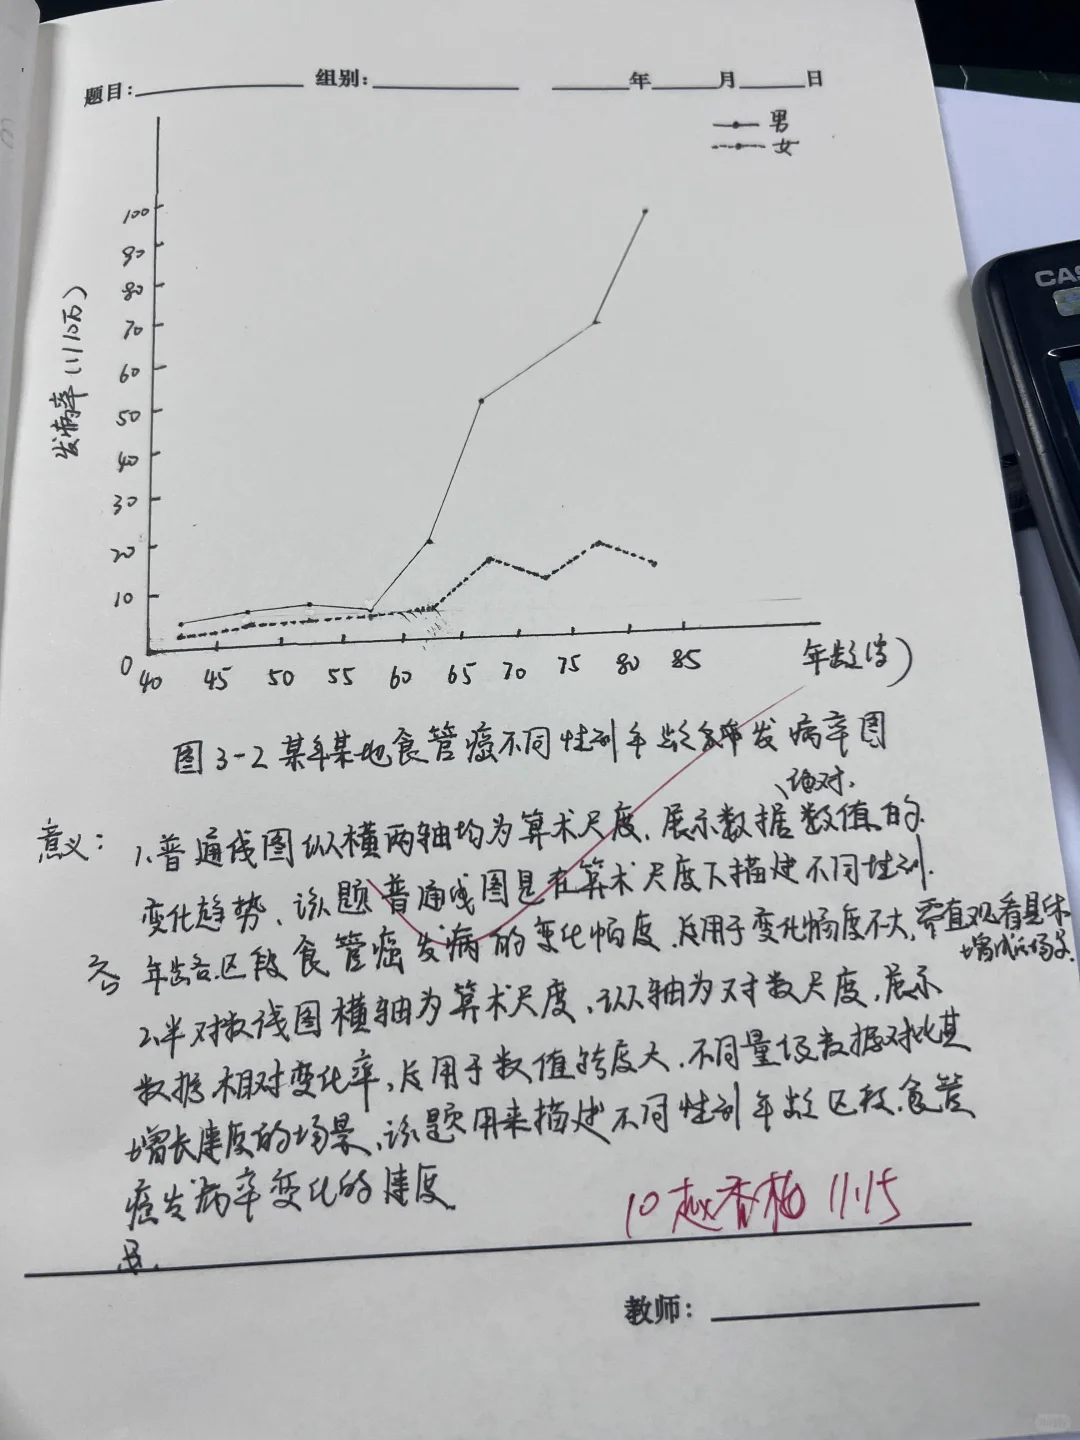 题目: 组别: 年 月 日
男
女
100
90
80
70
60
50
40
30
20
10
0
发病率(1/10万)
40 45 50 55 60 65 70 75 80 85 年龄(岁)
图3-2 某年某地食管癌不同性别年龄 发病率图
意义: 1、普通线图纵横两轴均为算术尺度,展示数据、绝对、数值的
变化趋势、该题普通线图是在算术尺度下描述不同性别、
年龄区段食管癌发病的变化幅度,适用于变化幅度不大,需直观看具体
增减的场景
2、半对数线图横轴为算术尺度,纵轴为对数尺度,展示
数据相对变化率,适用于数值跨度大、不同量级数据对比其
增长速度的场景、该题用来描述不同性别年龄区段食管
癌发病率变化的速度
10 赵香梅 11.15
教师:
CAS